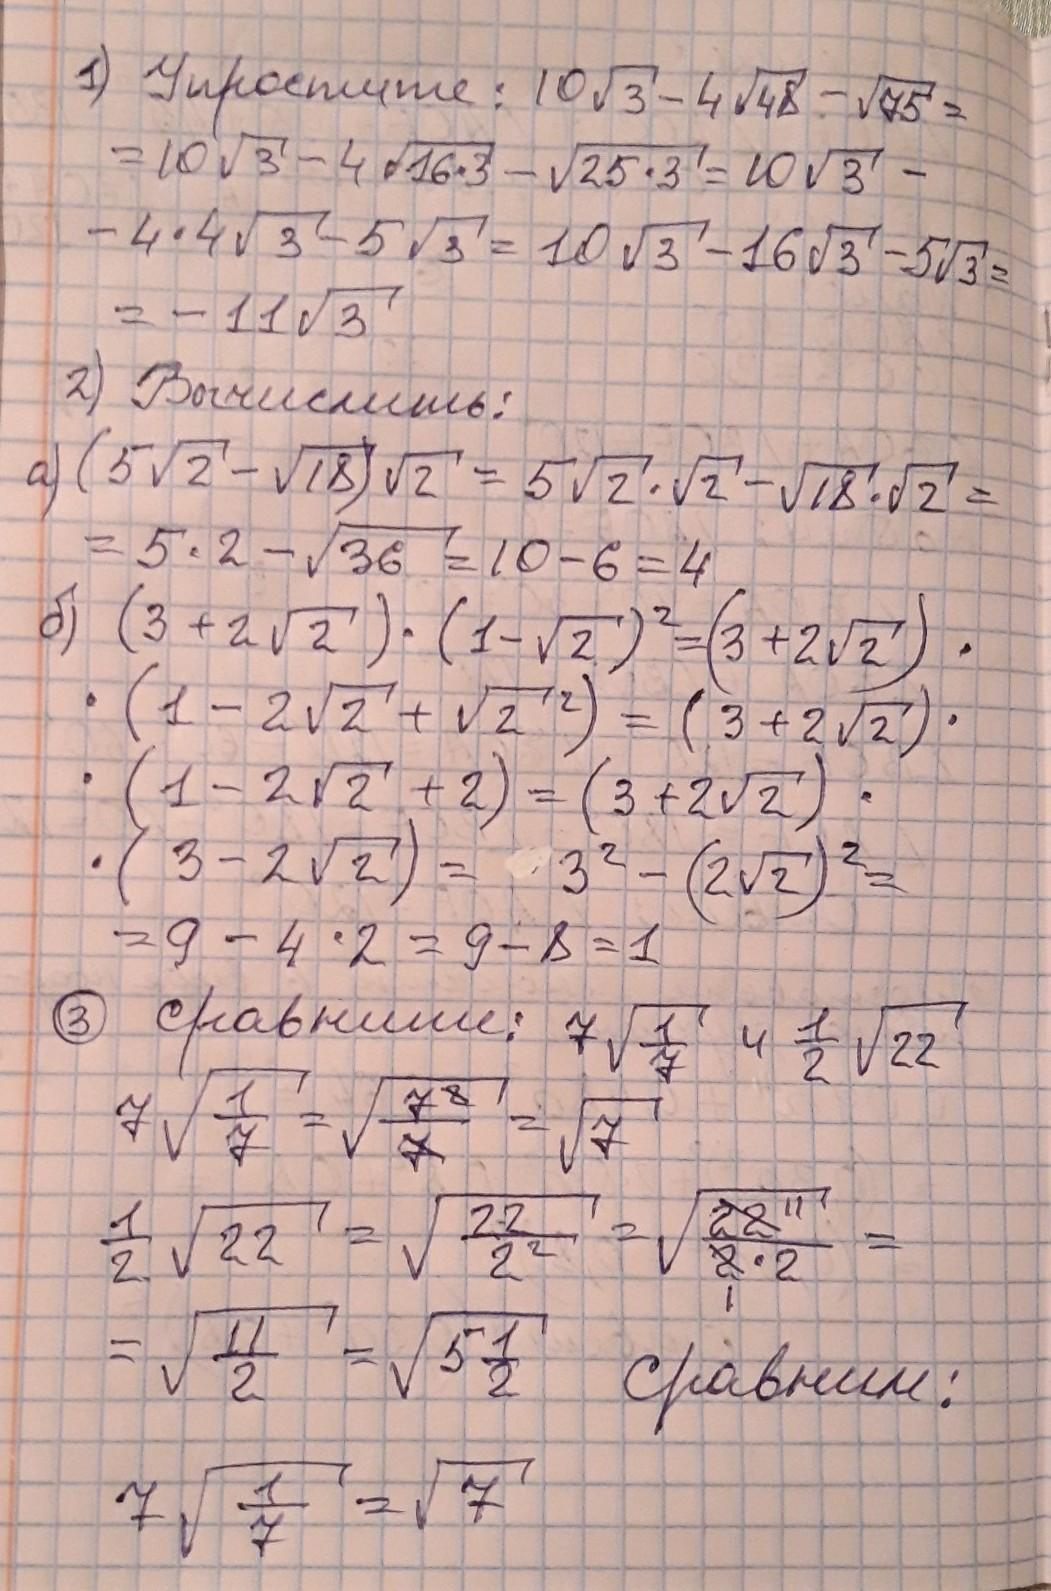 1) Упростите: 10√3 - 4√48 - √75 =
= 10√3 - 4√16·3 - √25·3 = 10√3 -
- 4·4√3 - 5√3 = 10√3 - 16√3 - 5√3 =
= - 11√3
2) Вычислить:
а) (5√2 - √18)√2 = 5√2·√2 - √18·√2 =
= 5·2 - √36 = 10 - 6 = 4
б) (3 + 2√2)·(1 - √2)² = (3 + 2√2) ·
· (1 - 2√2 + √2²) = (3 + 2√2) ·
· (1 - 2√2 + 2) = (3 + 2√2) ·
· (3 - 2√2) = 3² - (2√2)² =
= 9 - 4·2 = 9 - 8 = 1
③ Сравните: 7√1/7 и 1/2 √22
7√1/7 = √7²/7 = √7
1/2 √22 = √22/2² = √22 11/2·2 1 =
= √11/2 = √5 1/2 Сравним:
7√1/7 = √7